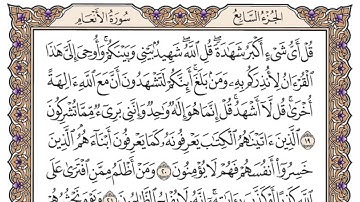 الجزء السابع سورة الأنعام
قُلْ أَىُّ شَىْءٍ أَكْبَرُ شَهَٰدَةً ۖ قُلِ ٱللَّهُ ۖ شَهِيدٌۢ بَيْنِى وَبَيْنَكُمْ ۚ وَأُوحِىَ إِلَىَّ هَٰذَا
ٱلْقُرْءَانُ لِأُنذِرَكُم بِهِۦ وَمَنۢ بَلَغَ ۚ أَئِنَّكُمْ لَتَشْهَدُونَ أَنَّ مَعَ ٱللَّهِ ءَالِهَةً
أُخْرَىٰ ۚ قُل لَّآ أَشْهَدُ ۚ قُلْ إِنَّمَا هُوَ إِلَٰهٌ وَٰحِدٌ وَإِنَّنِى بَرِىٓءٌ مِّمَّا تُشْرِكُونَ
١٩ ٱلَّذِينَ ءَاتَيْنَٰهُمُ ٱلْكِتَٰبَ يَعْرِفُونَهُۥ كَمَا يَعْرِفُونَ أَبْنَآءَهُمُ ۘ ٱلَّذِينَ
خَسِرُوٓا۟ أَنفُسَهُمْ فَهُمْ لَا يُؤْمِنُونَ ٢٠ وَمَنْ أَظْلَمُ مِمَّنِ ٱفْتَرَىٰ عَلَى
ٱللَّهِ كَذِبًا أَوْ كَذَّبَ بِـَٔايَٰتِهِۦٓ ۗ إِنَّهُۥ لَا يُفْلِحُ ٱلظَّٰلِمُونَ ٢١ وَيَوْمَ نَحْشُرُهُمْ